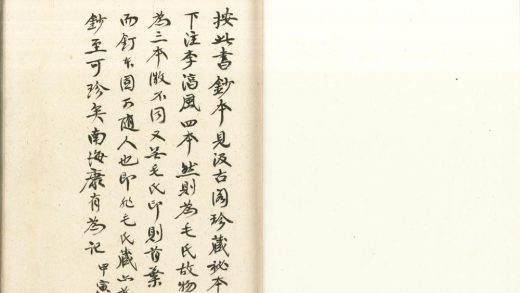 按此書鈔本見汲古閣珍藏祕本
下注李淳風四本然則為毛氏故物
為三本微不同又無毛氏印則首葉
而釘本固可隨人也即非毛氏藏亦舊
鈔至可珍矣南海康有為記 甲寅